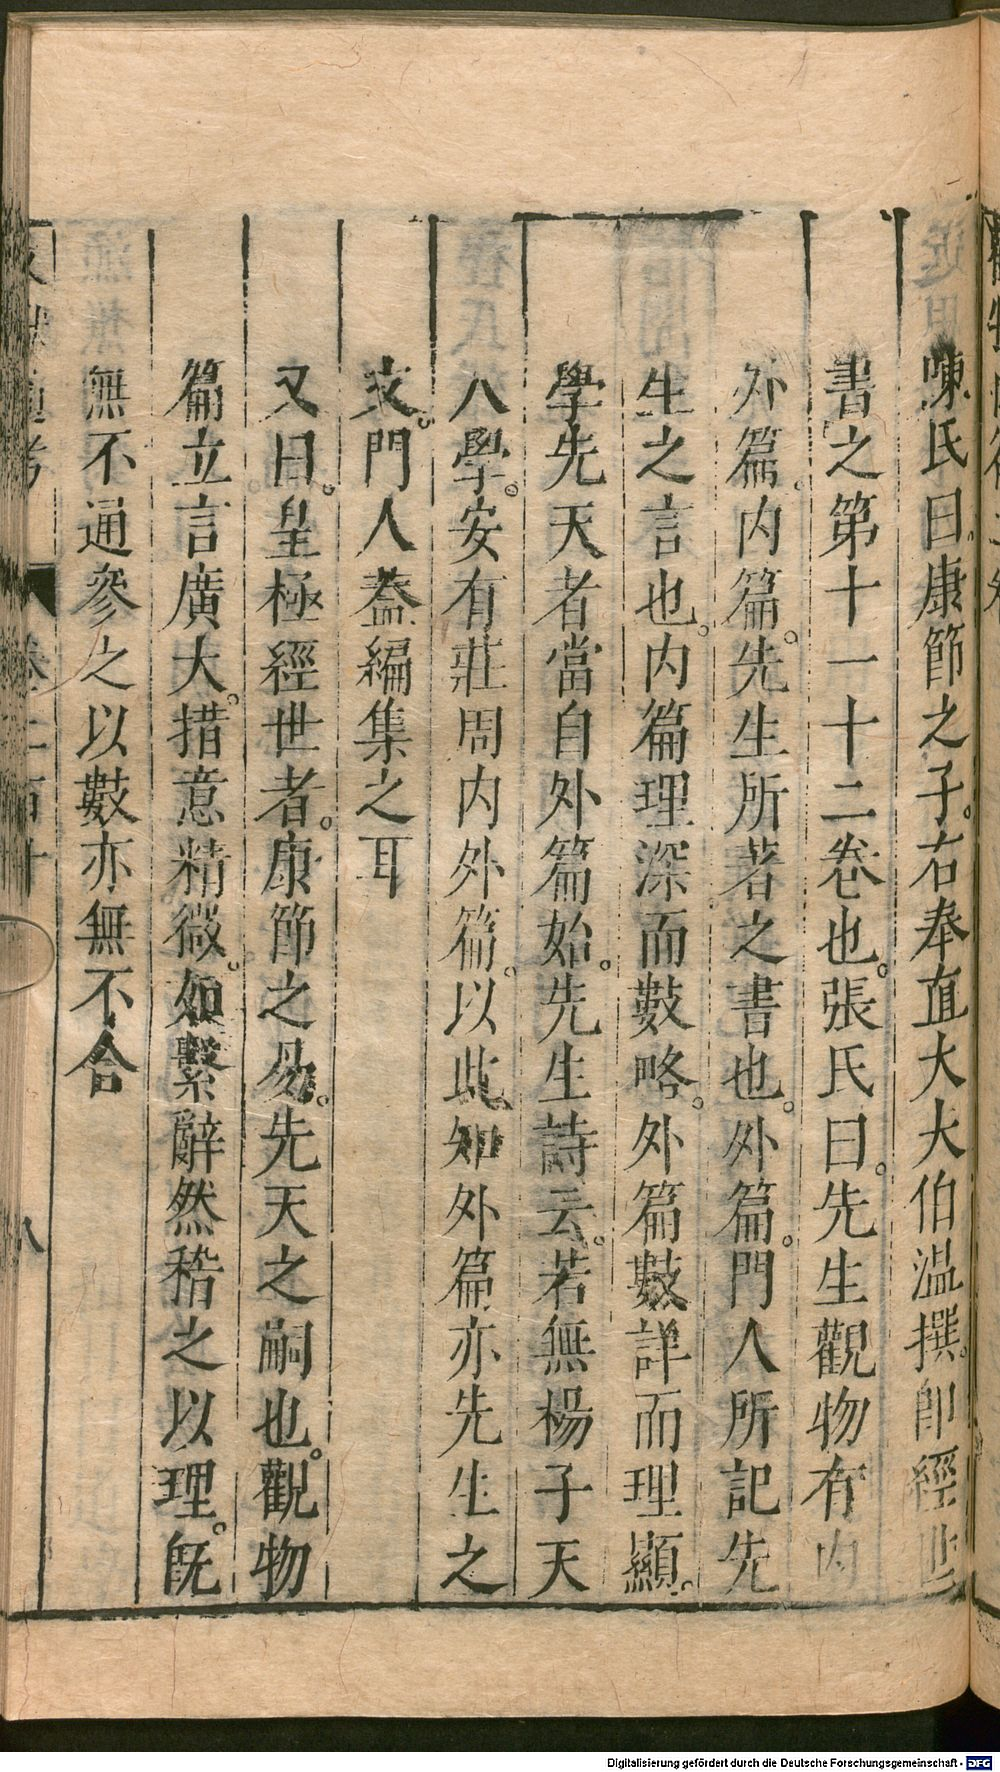 陳氏曰康節之子右奉直大夫伯温撰。即經世
書之第十一十二卷也。張氏曰。先生觀物有内
外篇。内篇。先生所著之書也。外篇。門人所記先
生之言也。内篇理深而數略。外篇數詳而理顯。
學先天者當自外篇始。先生詩云。若無楊子天
人學。安有莊周内外篇。以此知外篇亦先生之
文。門人葢編集之耳
又曰。皇極經世者。康節之易。先天之嗣也。觀物
篇立言廣大。措意精微。如繫辭然稽之以理。旣
無不通參之以數亦無不合
八
Digitalisierung gefördert durch die Deutsche Forschungsgemeinschaft - DFG